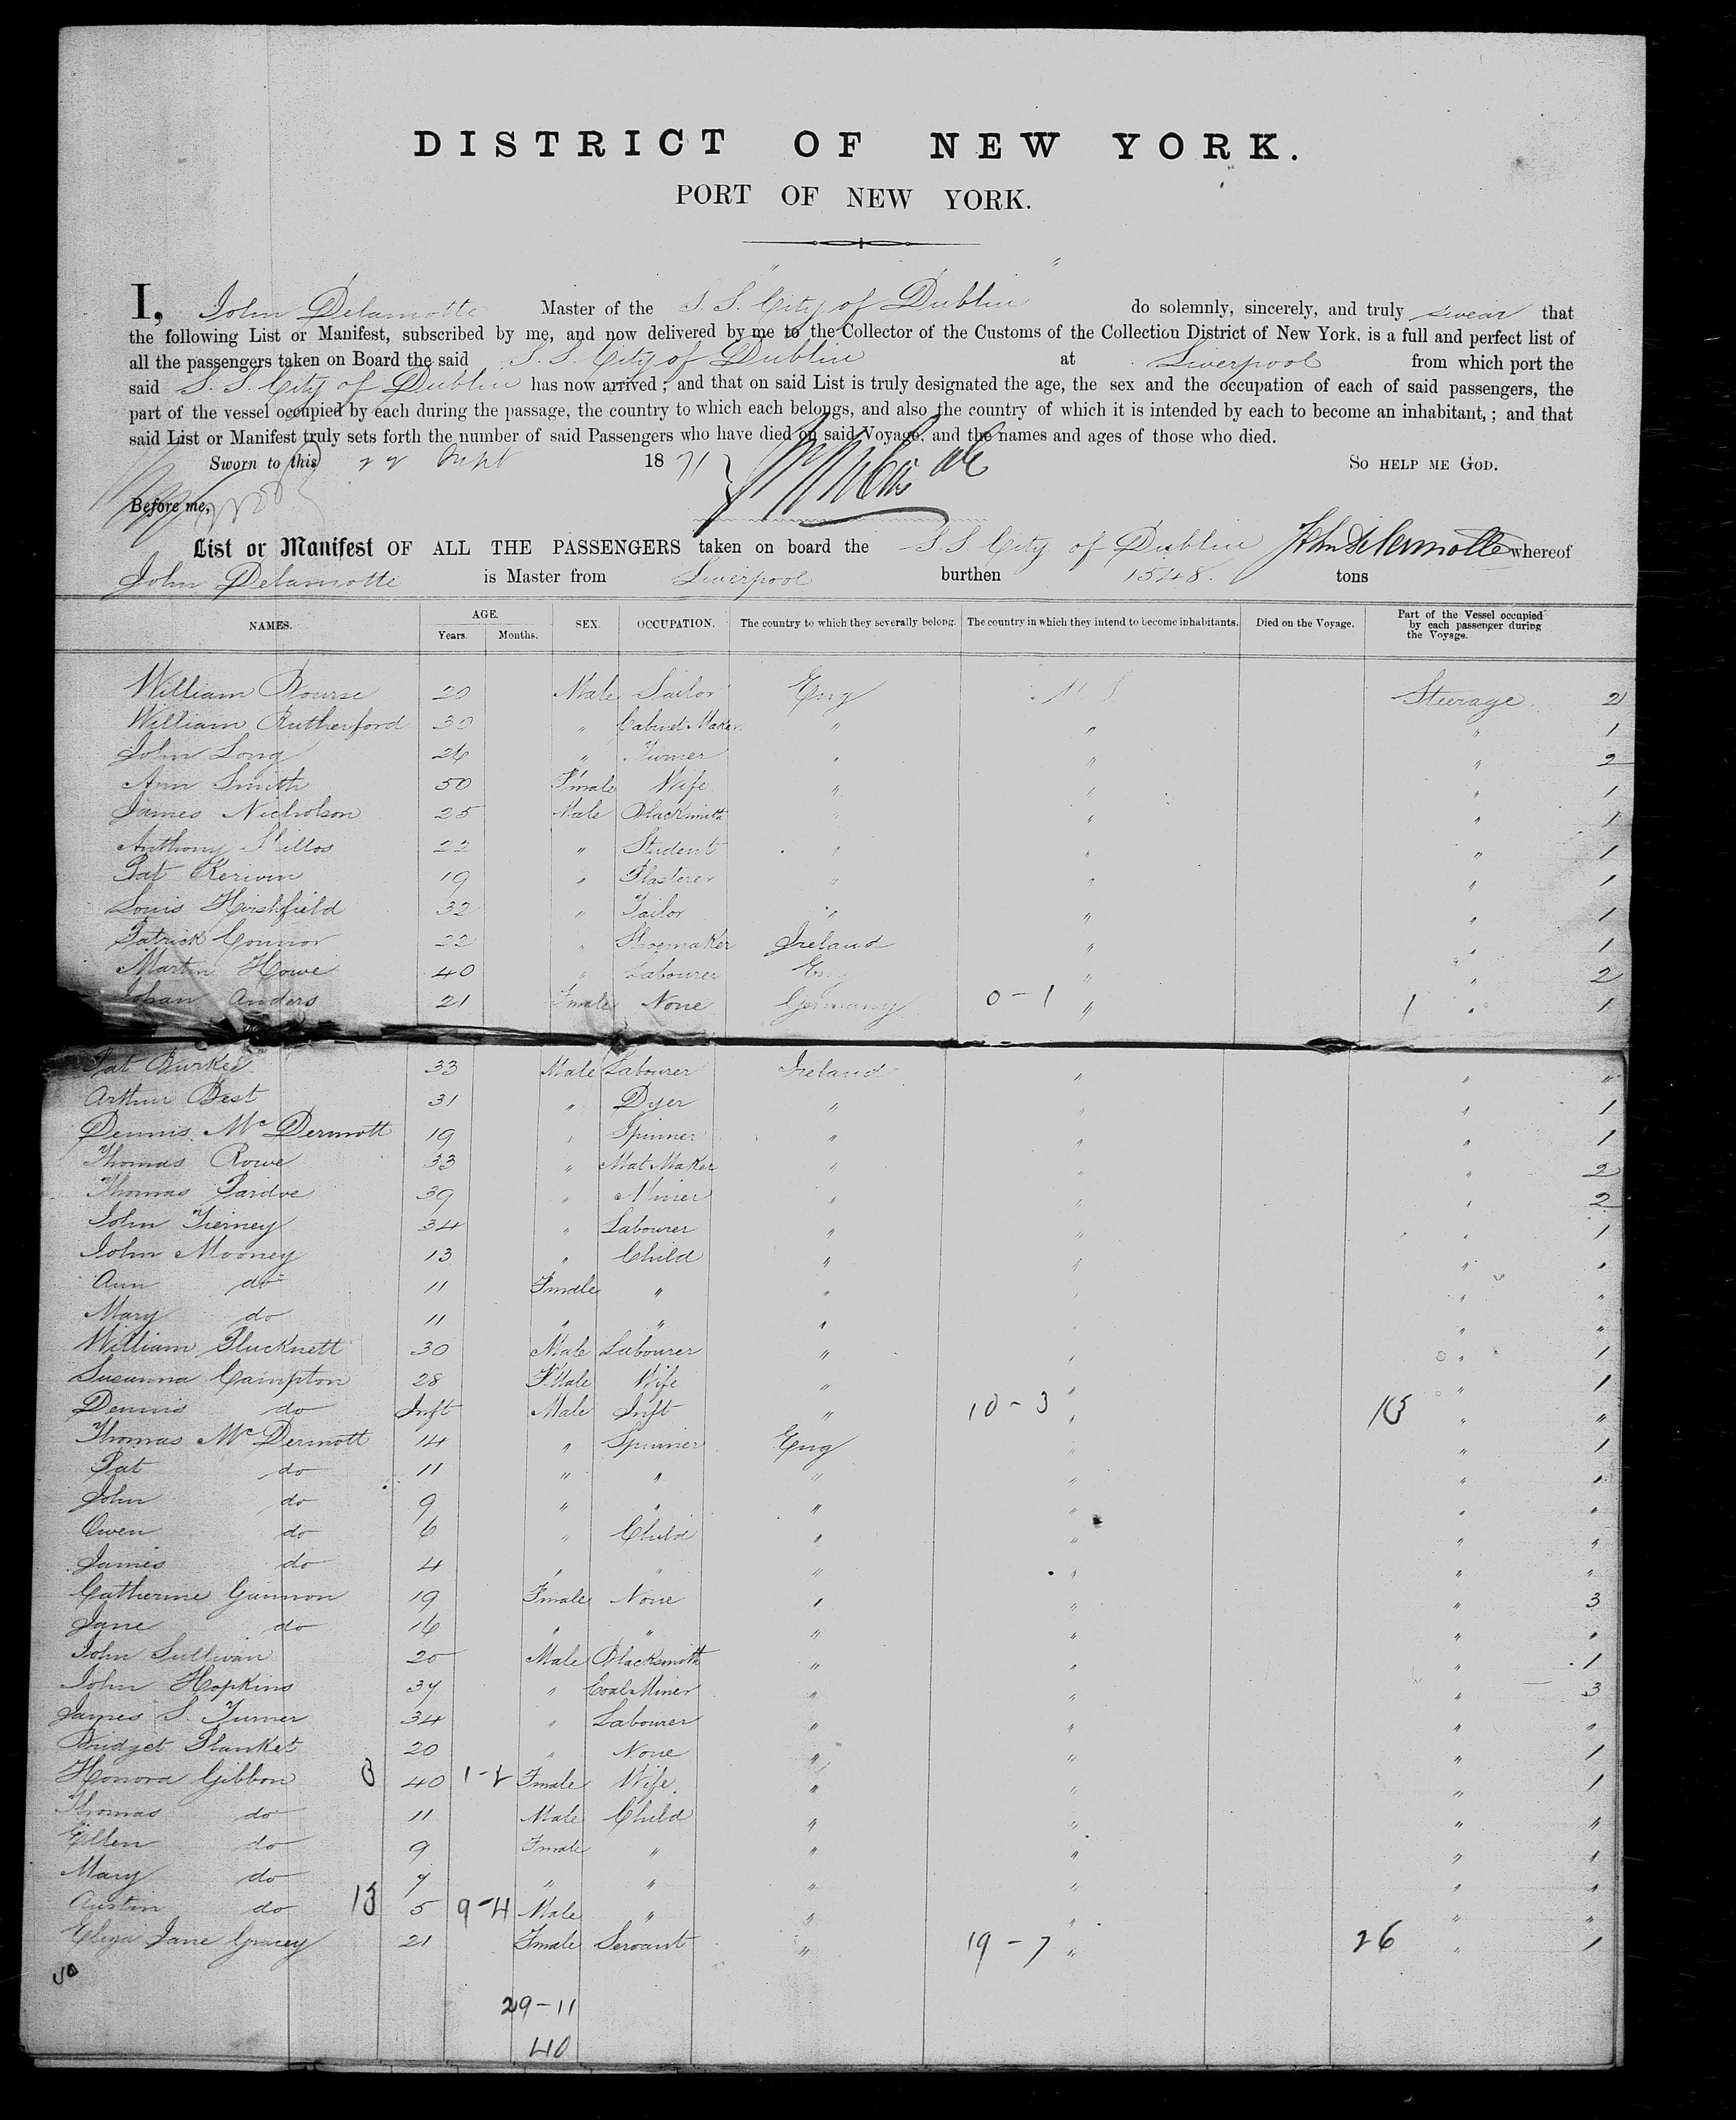 DISTRICT OF NEW YORK.
PORT OF NEW YORK.
I, John Delamotte Master of the S.S. City of Dublin do solemnly, sincerely, and truly swear that
the following List or Manifest, subscribed by me, and now delivered by me to the Collector of the Customs of the Collection District of New York. is a full and perfect list of
all the passengers taken on Board the said S.S. City of Dublin at Liverpool from which port the
said S.S. City of Dublin has now arrived ; and that on said List is truly designated the age, the sex and the occupation of each of said passengers, the
part of the vessel occupied by each during the passage, the country to which each belongs, and also the country of which it is intended by each to become an inhabitant, ; and that
said List or Manifest truly sets forth the number of said Passengers who have died on said Voyage, and the names and ages of those who died.
Sworn to this 1871 SO HELP ME GOD.
Before me,
List or Manifest OF ALL THE PASSENGERS taken on board the S.S. City of Dublin John Delamotte whereof
John Delamotte is Master from Liverpool burthen 1548. tons
NAMES. AGE. Years. Months. SEX. OCCUPATION. The country to which they severally belong. The country in which they intend to become inhabitants. Died on the Voyage. Part of the Vessel occupied by each passenger during the Voyage.
William Bourse 20 Male Sailor Eng U S Steerage 2
William Rutherford 30 " Cabinet Maker " " " 1
John Long 26 " Turner " " " 2
Ann Smith 50 Fmale Wife " " " 1
James Nicholson 25 Male Blacksmith " " " 1
Anthony 22 " Student " " " 1
Pat Kerivin 19 " Plasterer " " " 1
Louis Hirshfield 32 " Tailor " " " 1
Patrick Connor 22 " Shoemaker Ireland " " 1
Martin Howe 40 " Labourer Eng " " 2
Johan Anders 21 Fmale None Germany 0-1 " 1 " 1
Pat Burke 33 Male Labourer Ireland " " "
Arthur Best 31 " Dyer " " " 1
Dennis McDermott 19 " Spinner " " " 1
Thomas Rowe 33 " Mat Maker " " " 2
Thomas Pardoe 39 " Miner " " " 2
John Tierney 34 " Labourer " " " 1
John Mooney 13 " Child " " " "
Ann do 11 Fmale " " " " "
Mary do 11 " " " " " "
William Plucknett 30 Male Labourer " " " 1
Susanna Campton 28 FMale Wife " " " 1
Dennis do Inft Male Inft " 10-3 " 13 " "
Thomas McDermott 14 " Spinner Eng " " 1
Pat do 11 " " " " " "
John do 9 " " " " " "
Owen do 6 " Child " " " "
James do 4 " " " " " "
Catherine Gannon 19 Fmale None " " " 3
Jane do 16 " " " " " "
John Sullivan 20 Male Blacksmith " " " 1
John Hopkins 37 " Coal Miner " " " 3
James S. Turner 34 " Labourer " " " "
Bridget Planket 20 " None " " " 1
Honora Gibbon 3 40 1-2 Fmale Wife " " " 1
Thomas do 11 Male Child " " " "
Ellen do 9 Fmale " " " " "
Mary do 7 " " " " " "
Austin do 13 5 9-4 Male " " " " "
Eliza Jane Gracey 21 Fmale Servant " 19-7 " 26 " 1
29-11
40